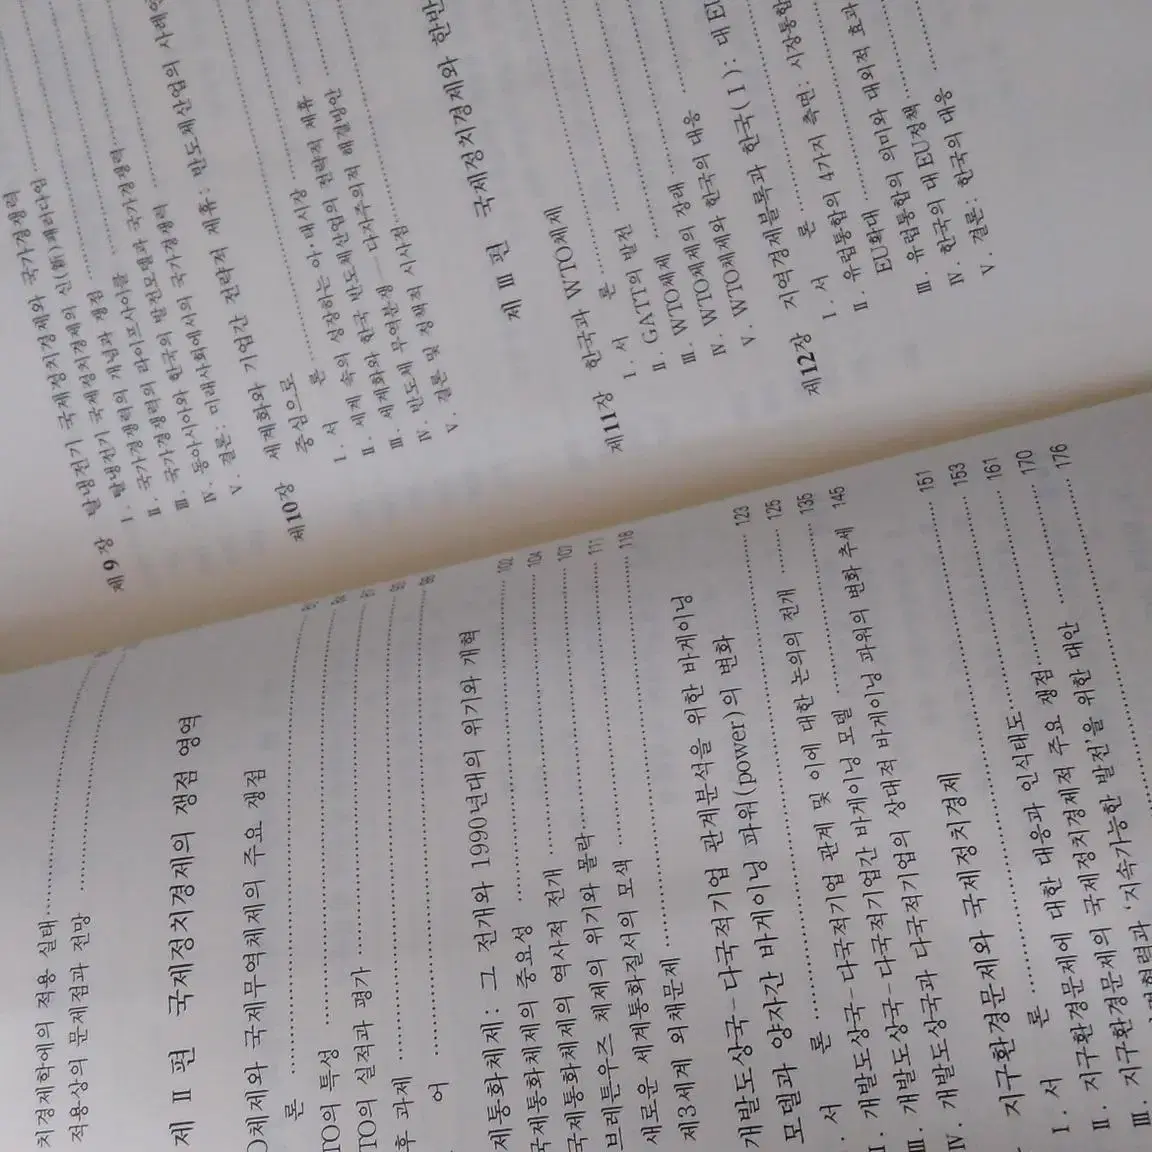 치경제학에의 적용 실태
적용상의 문제점과 전망
제 Ⅱ 편 국제정치경제의 쟁점 영역
O체제와 국제무역체제의 주요 쟁점
론
TO의 특성
TO의 실적과 평가
후 과제
어
제통화체제: 그 전개와 1990년대의 위기와 개혁
국제통화체제의 중요성 102
국제통화체제의 역사적 전개 104
브레튼우즈 체제의 위기와 몰락 107
새로운 세계통화질서의 모색 111
제3세계 외채문제 116
개발도상국-다국적기업 관계분석을 위한 바게이닝
모델과 양자간 바게이닝 파워(power)의 변화 123
. 서 론 125
Ⅰ. 개발도상국-다국적기업 관계 및 이에 대한 논의의 전개 135
Ⅲ. 개발도상국-다국적기업간 바게이닝 모델 145
Ⅳ. 개발도상국과 다국적기업의 상대적 바게이닝 파워의 변화 추세 151
지구환경문제와 국제정치경제 153
Ⅰ. 서 론 161
Ⅱ. 지구환경문제에 대한 대응과 인식태도 170
Ⅲ. 지구환경문제의 국제정치경제적 주요 쟁점 176
'지속가능한 발전'을 위한 대안
제 9 장 탈냉전기 국제정치경제와 국가경쟁력
Ⅰ. 탈냉전기 국제정치경제의 신(新)패러다임
Ⅱ. 국가경쟁력의 개념과 쟁점
Ⅲ. 국가경쟁력의 라이프사이클
Ⅳ. 동아시아와 한국의 발전모델과 국가경쟁력
Ⅴ. 결론: 미래사회에서의 국가경쟁력
제10장 세계화와 기업간 전략적 제휴: 반도체산업의 사례
중심으로
Ⅰ. 서 론
Ⅱ. 세계 속의 성장하는 아·태시장
Ⅲ. 세계화와 한국 반도체산업의 전략적 제휴
Ⅳ. 반도체 무역분쟁 — 다자주의적 해결방안
Ⅴ. 결론 및 정책적 시사점
제 Ⅲ 편 국제정치경제와 한반
제11장 한국과 WTO체제
Ⅰ. 서 론
Ⅱ. GATT의 발전
Ⅲ. WTO체제
Ⅳ. WTO체제의 장래
Ⅴ. WTO체제와 한국의 대응
제12장 지역경제블록과 한국(Ⅰ): 대 EU
Ⅰ. 서 론
Ⅱ. 유럽통합의 4가지 측면: 시장통합
EU확대
Ⅲ. 유럽통합의 의미와 대외적 효과
Ⅳ. 한국의 대 EU정책
Ⅴ. 결론: 한국의 대응